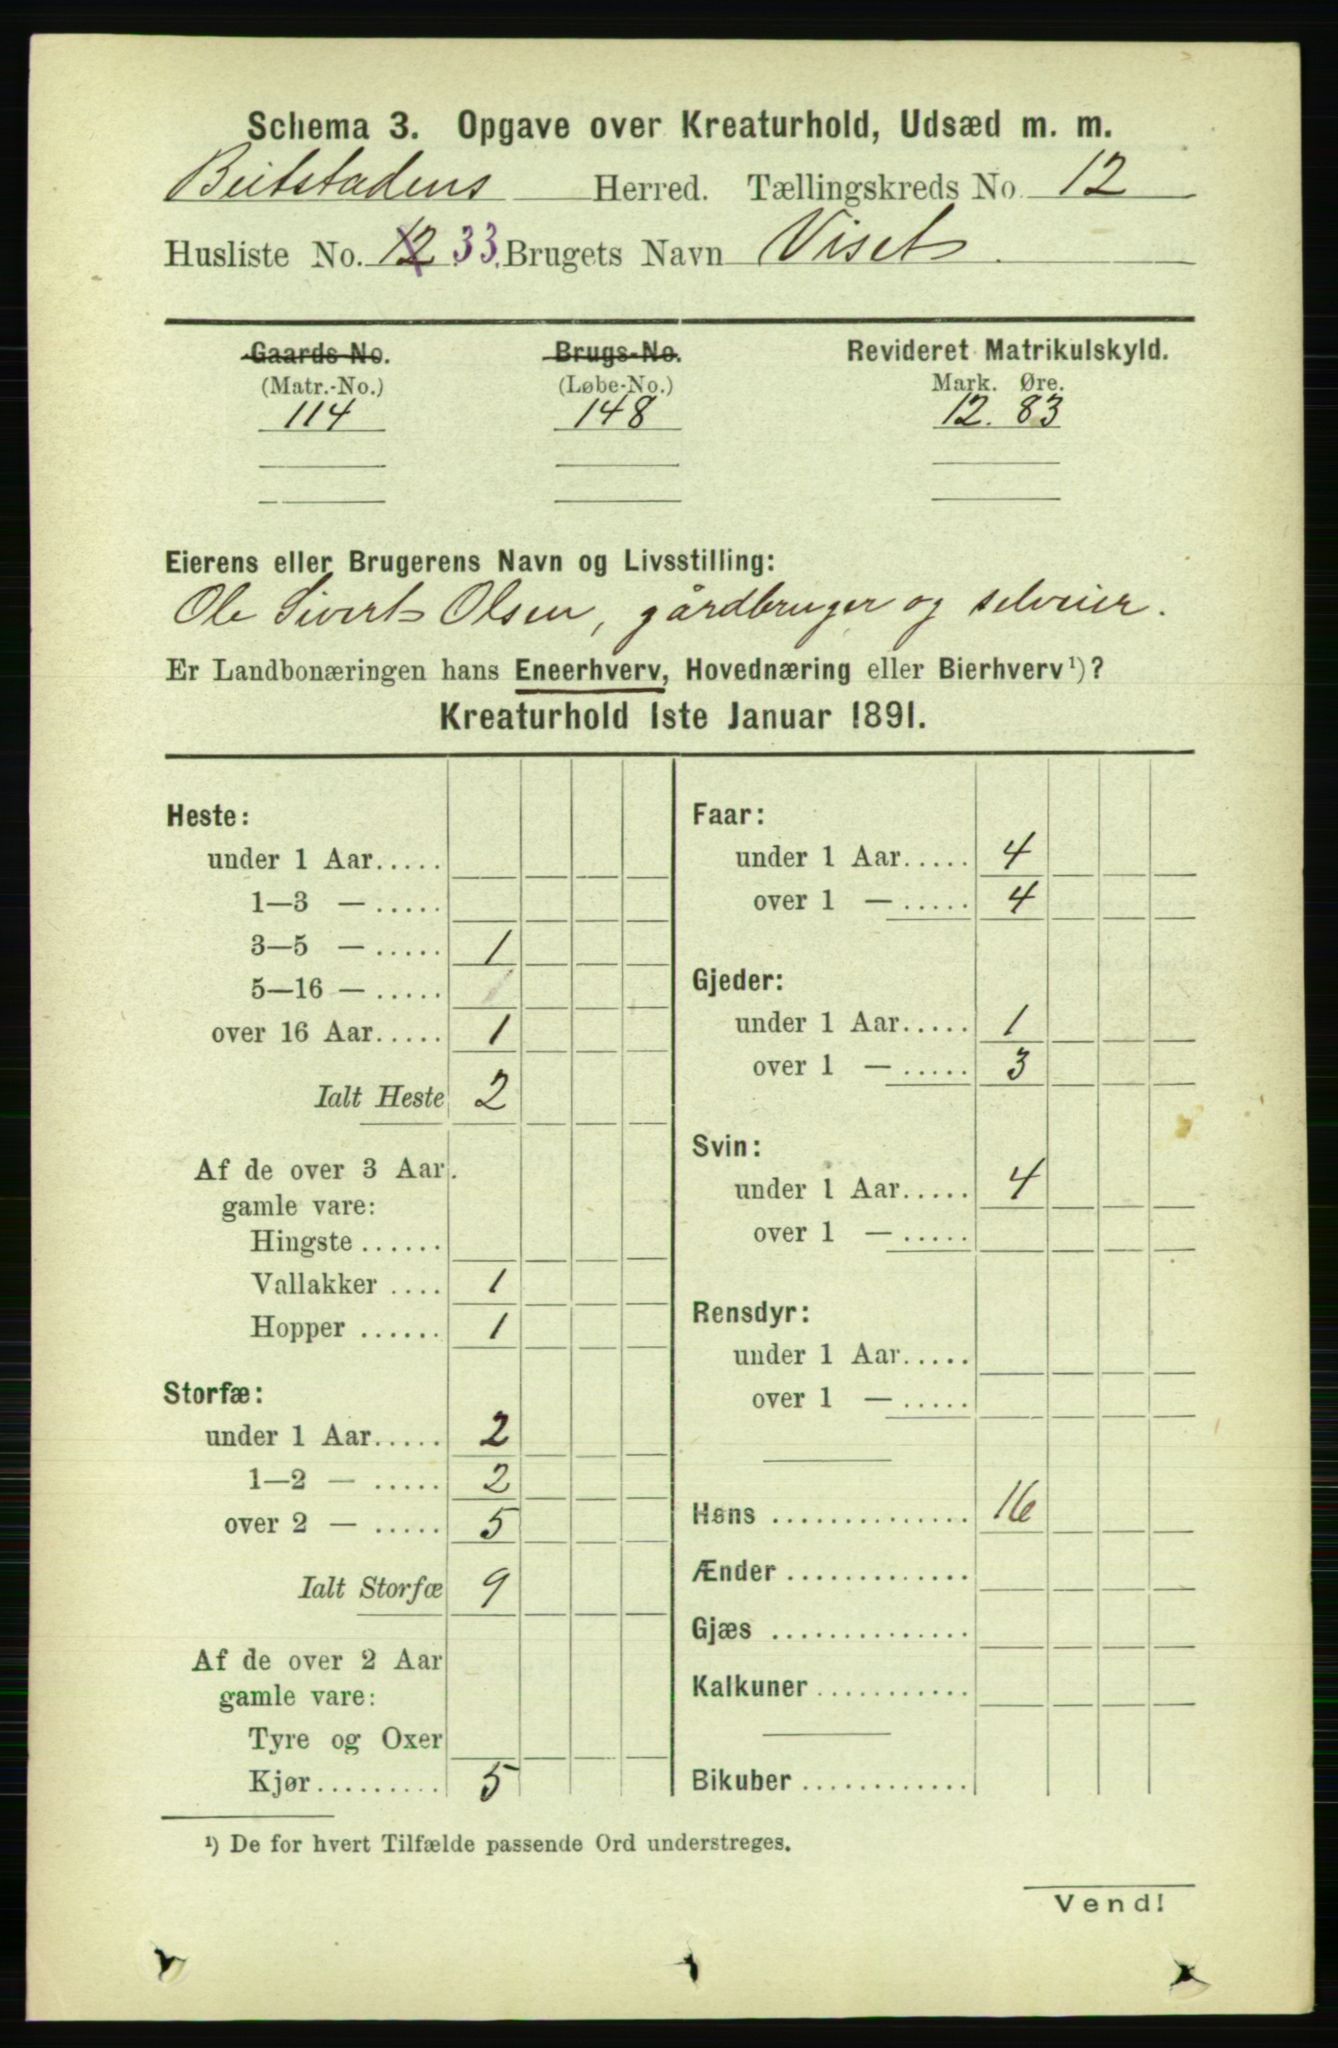 Schema 3. Opgave over Kreaturhold, Udsæd m. m.
Beitstadens Herred. Tællingskreds No. 12
Husliste No. 12 33. Brugets Navn Viset
Gaards-No. Brugs-No. Revideret Matrikulskyld.
(Matr.-No.) (Løbe-No.) Mark. Øre.
114 148 12. 83
Eierens eller Brugerens Navn og Livsstilling:
Ole Sivert Olsen, gårdbruger og selveier.
Er Landbonæringen hans Eneerhverv, Hovednæring eller Bierhverv¹)?
Kreaturhold 1ste Januar 1891.
Heste:
under 1 Aar.....
1—3 — .....
3—5 — ..... 1
5—16 — .....
over 16 Aar..... 1
Ialt Heste 2
Af de over 3 Aar
gamle vare:
Hingste ......
Vallakker .... 1
Hopper ...... 1
Storfæ:
under 1 Aar..... 2
1—2 — ..... 2
over 2 — ..... 5
Ialt Storfæ 9
Af de over 2 Aar
gamle vare:
Tyre og Oxer
Kjør......... 5
Faar:
under 1 Aar..... 4
over 1 — ..... 4
Gjeder:
under 1 Aar..... 1
over 1 — ..... 3
Svin:
under 1 Aar..... 4
over 1 — .....
Rensdyr:
under 1 Aar.....
over 1 — .....
Høns .............. 16
Ænder .............
Gjæs ..............
Kalkuner ...........
Bikuber ............
¹) De for hvert Tilfælde passende Ord understreges.
Vend!